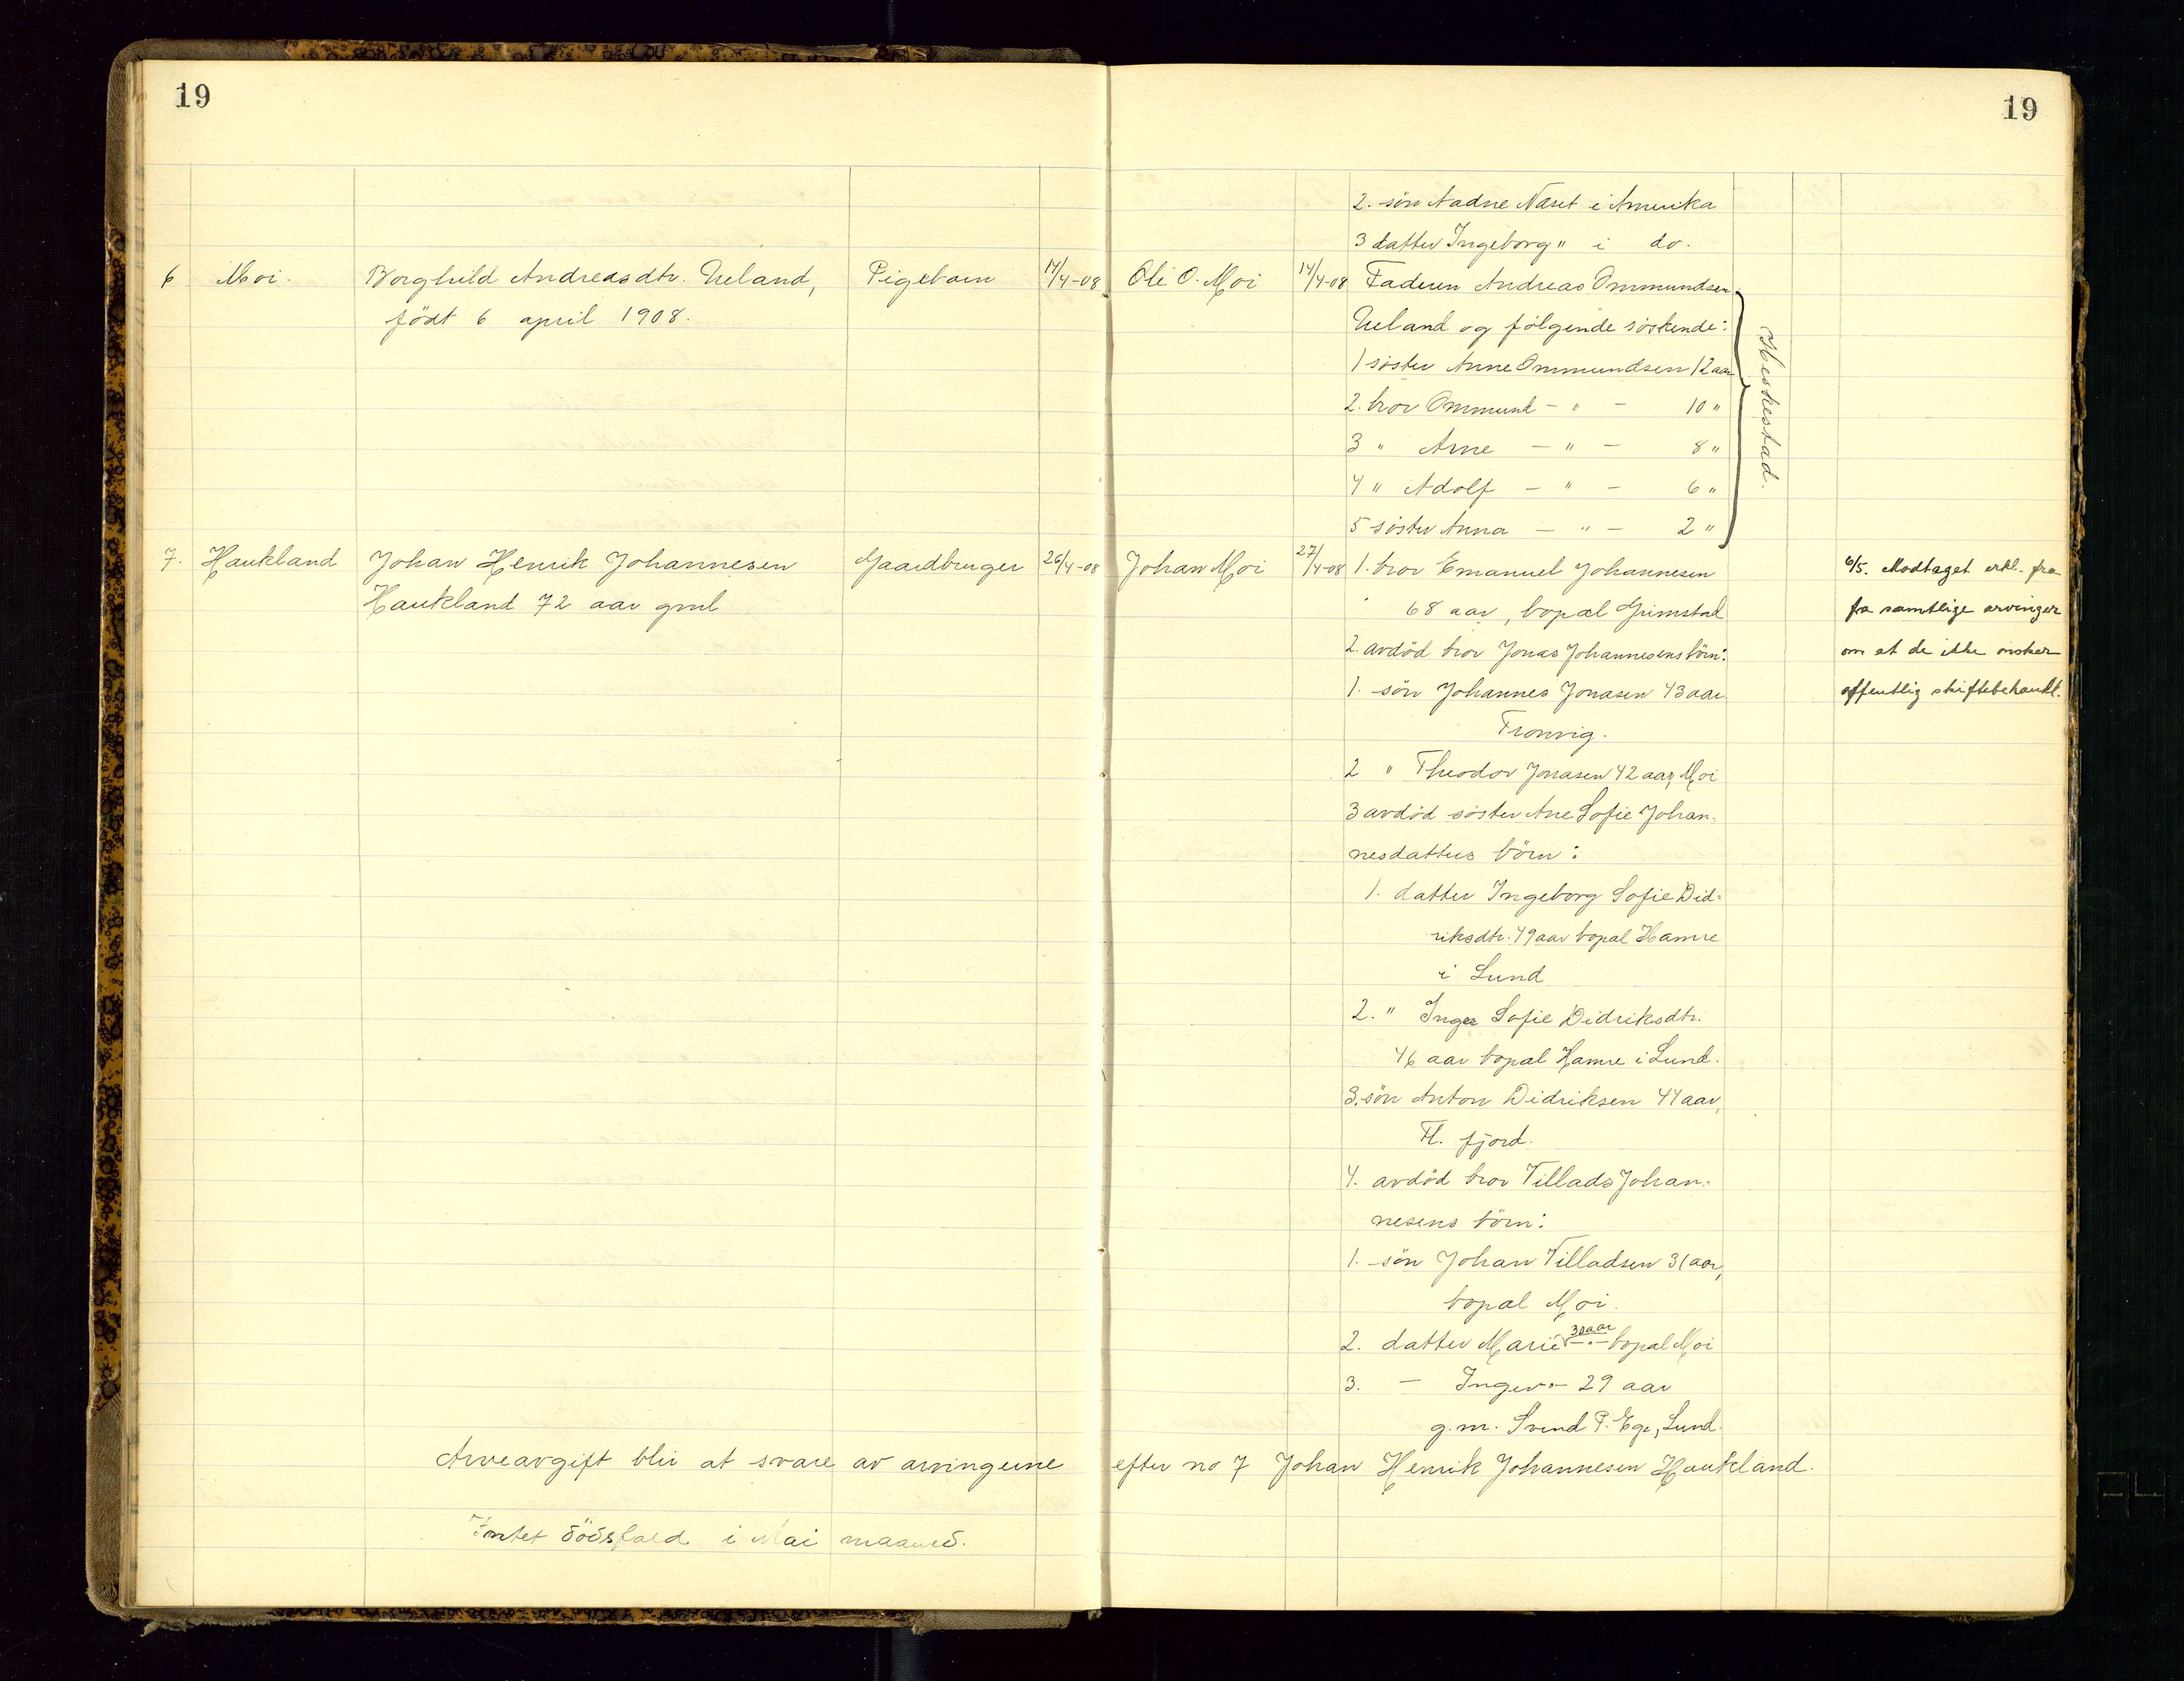 19
19
2. sön Aadne Næset i Amerika
3 datter Ingeborg " i do.
6 Moi. Borghild Andreasdtr. Ueland, Pigebarn 14/4-08 Ole O. Moi 14/4-08 Faderen Andreas Ommundsen
födt 6 april 1908. Ueland og følgende söskende:
1 söster Anne Ommundsen 12 aar
2. bror Ommund - " - 10 "
3 " Arne - " - 8 "
4 " Adolf - " - 6 "
5 söster Anna - " - 2 "
Heskestad.
7. Haukland Johan Henrik Johannesen Gaardbruger 26/4-08 Johan Moi 27/4-08 1. bror Emanuel Johannesen 6/5. Modtaget erkl. fra
Haukland 72 aar gml 68 aar, bopæl Grimstad fra samtlige arvinger
2. avdöd bror Jonas Johannesens börn: om at de ikke önsker
1. sön Johannes Jonasen 43 aar. offentlig skiftebehandl.
Tronvig.
2 " Theodor Jonasen 42 aar, Moi
3 avdöd söster Ane Sofie Johan-
nesdatters börn:
1. datter Ingeborg Sofie Did-
riksdtr. 49 aar bopæl Hamre
i Lund
2. " Inger Sofie Didriksdtr.
46 aar bopæl Hamre i Lund.
3. sön Anton Didriksen 44 aar,
Fl. fjord.
4. avdöd bror Tillads Johan-
nesens börn:
1. sön Johan Tilladsen 31 aar,
bopæl Moi.
2. datter Marie - " - 30 aar bopæl Moi
3. - Inger - " - 29 aar
g.m. Svend P. Ege, Lund.
Arveavgift blir at svare av arvingerne efter no 7 Johan Henrik Johannesen Haukland.
Intet dödsfald i Mai maaned.